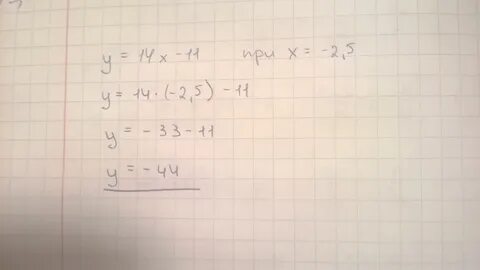 y = 14x - 11 при x = -2,5
y = 14 · (-2,5) - 11
y = - 33 - 11
y = - 44